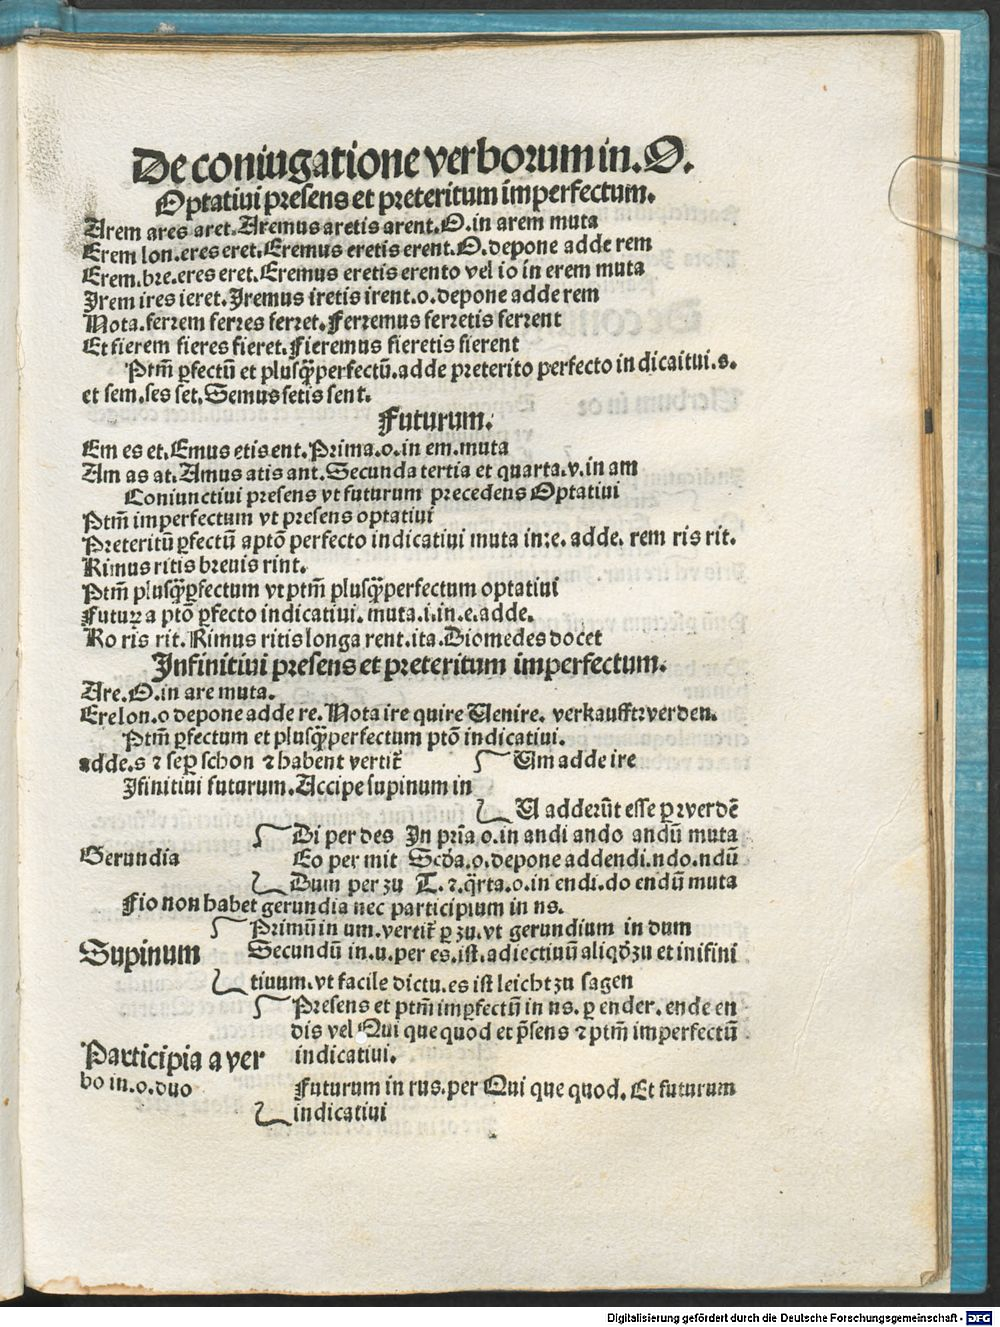 De coniugatione verborum in. O.
Optatiui presens et preteritum imperfectum.
Arem ares aret. Aremus aretis arent. O. in arem muta
Erem lon. eres eret. Eremus eretis erent. O. depone adde rem
Erem. bre. eres eret. Eremus eretis erent o vel io in erem muta
Irem ires ieret. Iremus iretis irent. o. depone adde rem
Nota. ferrem ferres ferret. Ferremus ferretis ferrent
Et fierem fieres fieret. Fieremus fieretis fierent
Ptm̄ ꝑfectū et plusꝙ̄perfectū. adde preterito perfecto in dicaitui. s.
et sem. ses set. Semus setis sent.
Futurum.
Em es et. Emus etis ent. Prima. o. in em. muta
Am as at. Amus atis ant. Secunda tertia et quarta. v. in am
Coniunctiui presens vt futurum precedens Optatiui
Ptm̄ imperfectum vt presens optatiui
Preteritū ꝑfectū a ptō perfecto indicatiui muta in: e. adde. rem ris rit.
Rimus ritis breuis rint.
Ptm̄ plusꝙ̄ꝑfectum vt ptm̄ plusꝙ̄perfectum optatiui
Futurꝝ a ptō ꝑfecto indicatiui. muta. i. in. e. adde.
Ro ris rit. Rimus ritis longa rent. ita. Diomedes docet
Infinitiui presens et preteritum imperfectum.
Are. O. in are muta.
Ere lon. o depone adde re. Nota ire quire Uenire. verkaufft: verden.
Ptm̄ ꝑfectum et plusꝙ̄perfectum ptō indicatiui.
adde. s ⁊ seꝑ schon ⁊ habent vertit̄
Um adde ire
Ifinitiui futurum. Accipe supinum in
U adderūt esse ꝑ ꝛverdē
Di per des In pria o. in andi ando andū muta
Gerundia Eo per mit Scd̄a. o. depone addendi. ndo. ndū
Dum per zu T. ⁊. q̄rta. o. in endi. do endū muta
Fio non habet gerundia nec participium in ns.
Primū in um. vertit̄ ꝑ zu. vt gerundium in dum
Supinum Secundū in. u. per es. ist. adiectiuū aliqd̄ zu et inifini
tiuum. vt facile dictu. es ist leicht zu sagen
Presens et ptm̄ imꝑfectū in ns. ꝑ ender. ende en
dis vel Qui que quod et p̄sens ⁊ ptm̄ imperfectū
Participia a ver indicatiui.
bo in. o. duo Futurum in rus. per Qui que quod. Et futurum
indicatiui
Digitalisierung gefördert durch die Deutsche Forschungsgemeinschaft - DFG